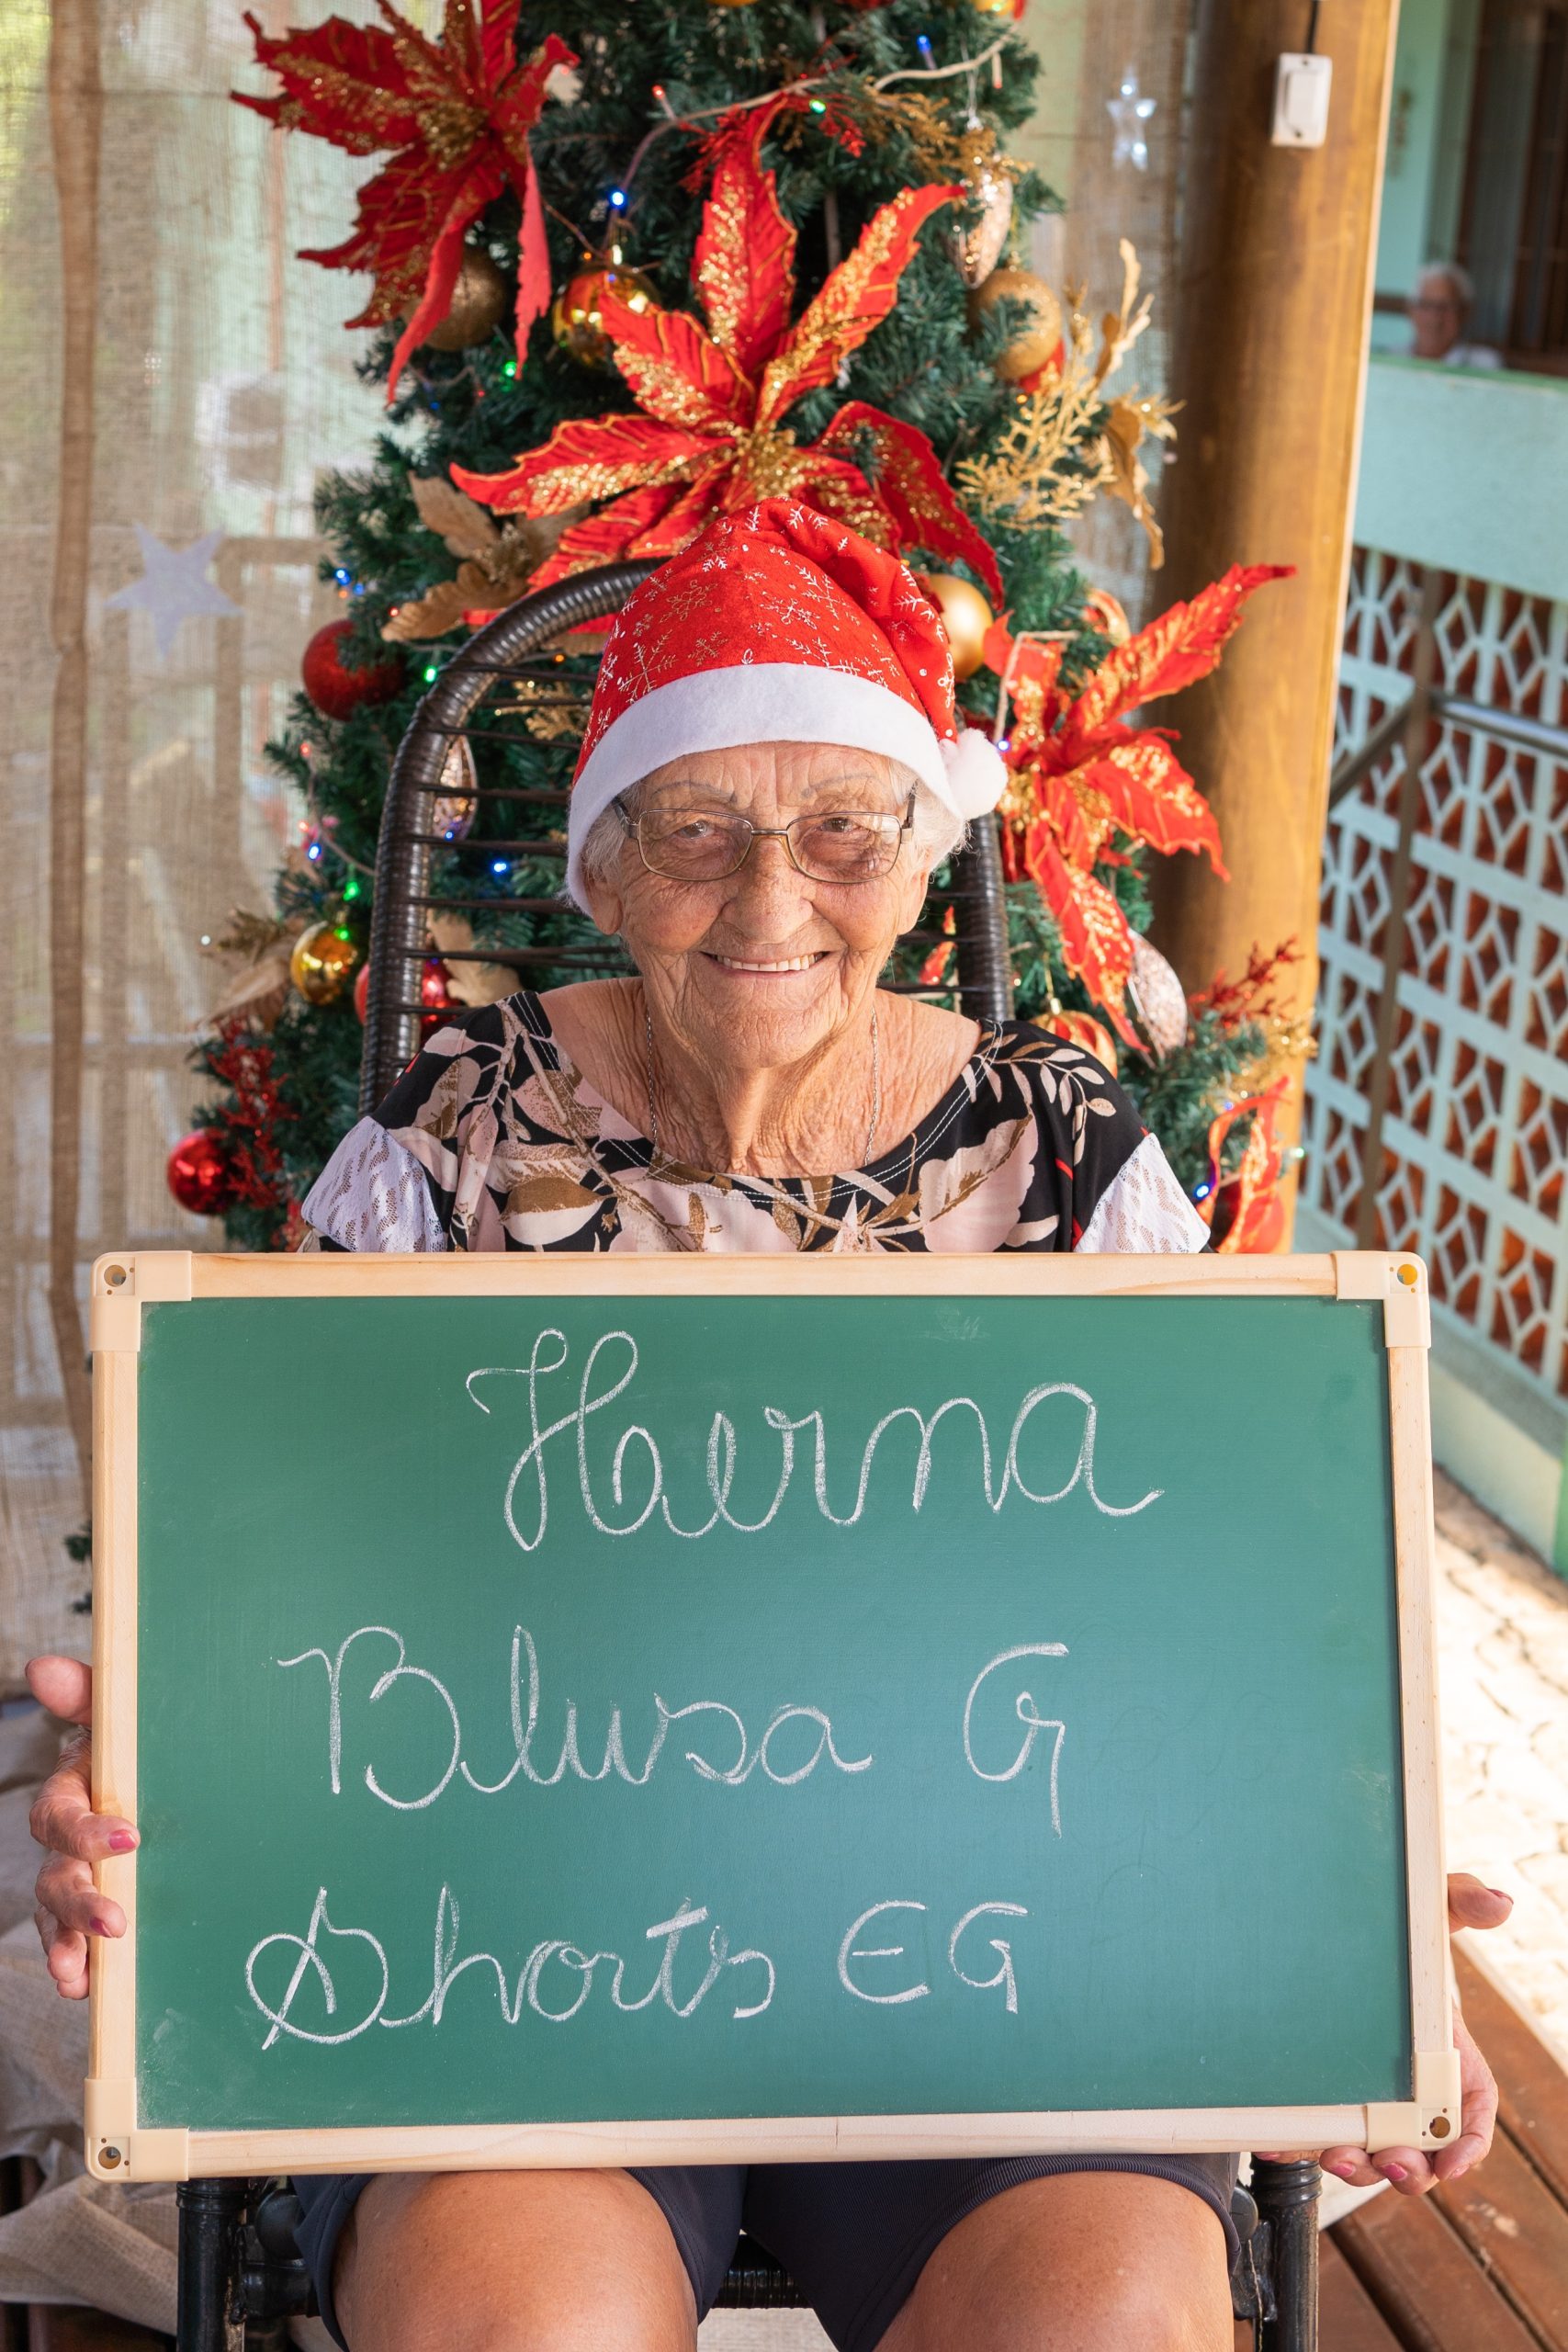 Herna
Blusa G
Shorts EG